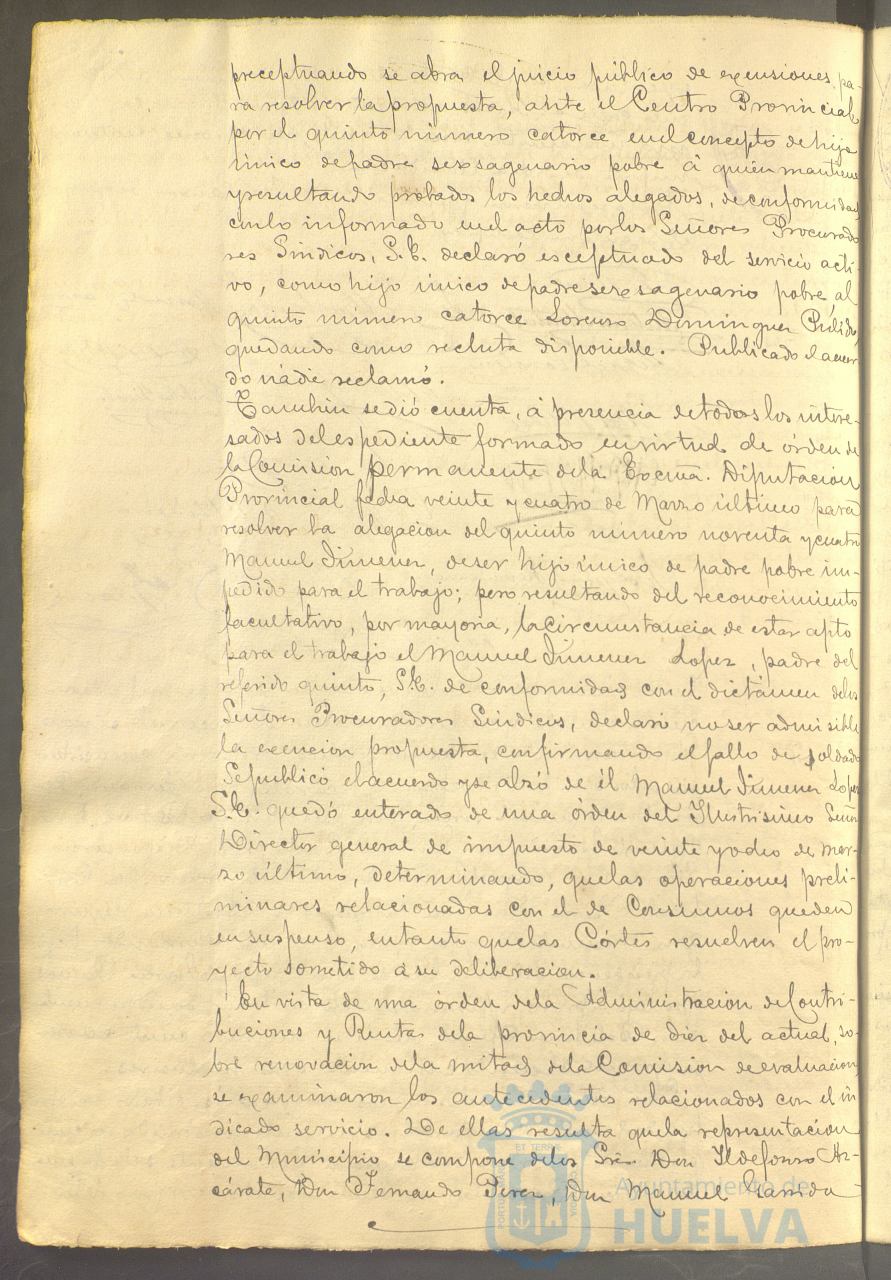 preceptuando se abra el juicio público de exensiones, pa-
ra resolver la propuesta, ante el Centro Provincial
por el quinto número catorce en el concepto de hijo
único de padre sexsagenario pobre á quien mantiene
y resultando probados los hechos alegados, de conformidad
con lo informado en el acto por los Señores Procurado
res Sindicos, S.E. declaró esceptuado del servicio acti-
vo, como hijo único de padre sexsagenario pobre, al
quinto número catorce Lorenzo Dominguez Pulido,
quedando como recluta disponible. Publicado el acuer
do nádie reclamó.
Tambien se dió cuenta, á presencia de todos los intere-
sados del espediente formado en virtud de órden de
la Comision permanente de la Excma. Diputacion
Provincial fecha veinte y cuatro de Marzo último para
resolver la alegacion del quinto número noventa y cuatro
Manuel Jimenez, de ser hijo único de padre pobre im-
pedido para el trabajo; pero resultando del reconocimiento
facultativo, por mayoria, la circunstancia de estar apto
para el trabajo el Manuel Jimenez Lopez, padre del
referido quinto, S.E. de conformidad con el dictámen de los
Señores Procuradores Sindicos, declaró no ser admisible
la exencion propuesta, confirmando el fallo de soldado
Se publicó el acuerdo y se alzó de él Manuel Jimenez Lopez
S.E. quedó enterado de una órden del Ilustrisimo Señor
Director general de impuesto de veinte y ocho de Mar-
zo último, determinando, que las operaciones preli-
minares relacionadas con el de Consumos queden
en suspenso, en tanto que las Córtes resuelven el pro-
yecto sometido á su deliberacion.
En vista de una órden de la Administracion de Contri-
buciones y Rentas de la provincia de diez del actual, so-
bre renovacion de la mitad de la Comision de evaluacion,
se examinaron los antecedentes relacionados con el in
dicado servicio. De ellas resulta que la representacion
del Municipio se compone de los Sres. Don Ildefonso Az-
cárate, Don Fernando Perez, Don Manuel Garrido
Ayuntamiento de
HUELVA